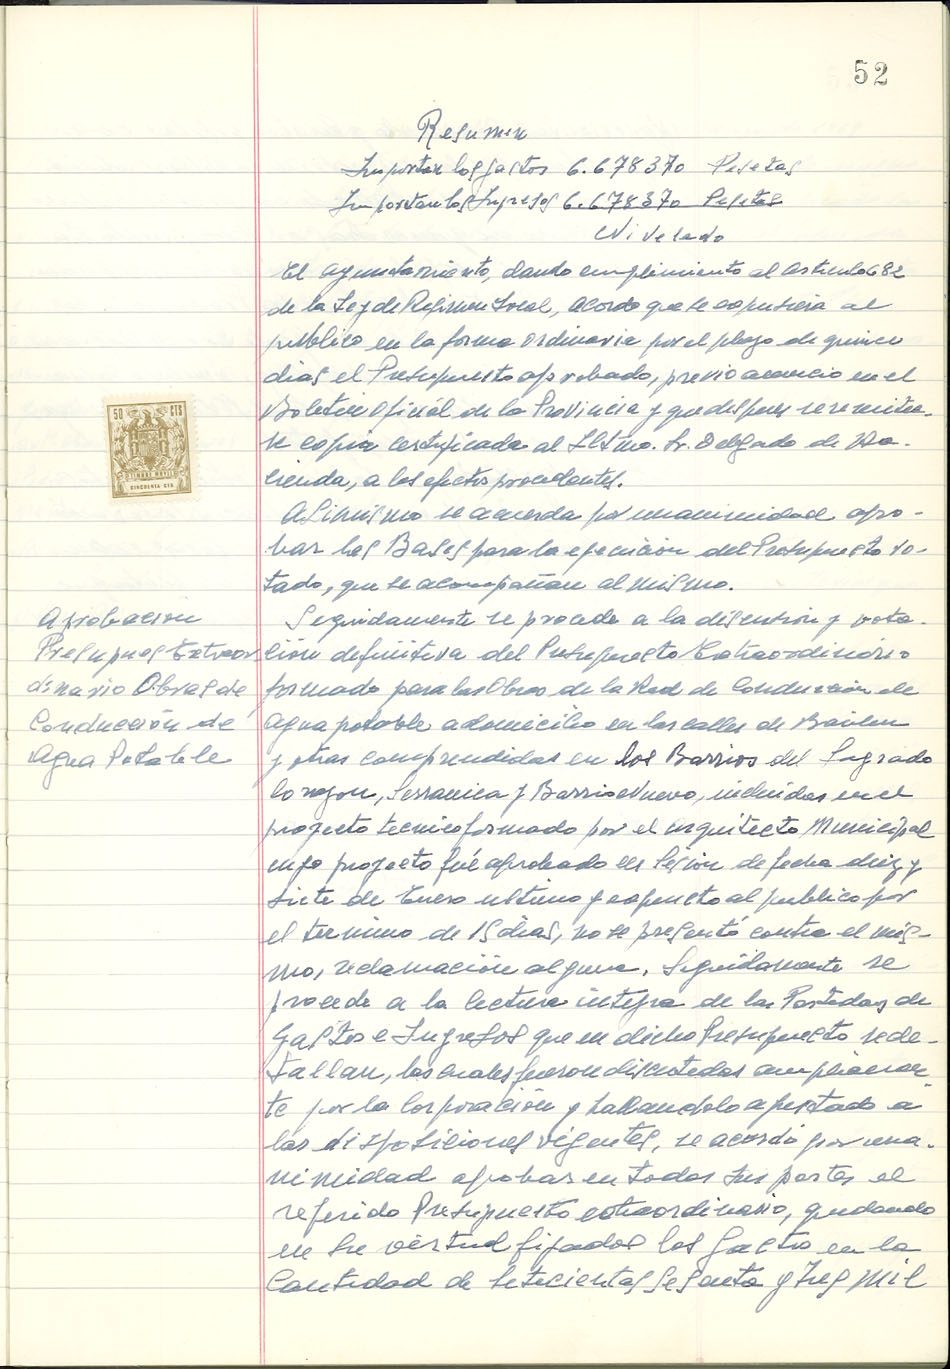 52
Resumen
Importan los gastos 6.678370 Pesetas
Importan los Ingresos 6.678370 Pesetas
Nivelado
El ayuntamiento, dando cumplimiento al articulo 682
de la Ley de Regimen Local, acordo que se expusiera al
publico en la forma ordinaria por el plazo de quince
dias el Presupuesto aprobado, previo anuncio en el
Boletin Oficial de la Provincia y que despues se remitie-
se copia certificada al Iltmo. Sr. Delegado de Ha-
cienda, a los efectos procedentes.
50 CTS
TIMBRE MOVIL
CINCUENTA CTS
Asimismo se acuerda por unanimidad apro-
bar las Bases para la ejecucion del Presupuesto vo-
tado, que se acompañan al mismo.
Aprobacion
Presupues Extraor
dinario Obras de
Conducción de
Agua Potable
Seguidamente se procede a la discusion y vota-
ción definitiva del Presupuesto Extraordinario
formado para las Obras de la Red de Conducción de
Agua potable a domicilio en las calles de Bailen
y otras comprendidas en los Barrios del Sagrado
Corazon, Serranica y Barrio Nuevo, incluidas en el
proyecto tecnico formado por el arquitecto Municipal
cuyo proyecto fué aprobado en Sesion de fecha diez y
siete de Enero ultimo y expuesto al publico por
el termino de 15 dias, no se presentó contra el mis-
mo, reclamación alguna. Seguidamente se
procede a la lectura integra de las Partidas de
Gastos e Ingresos que en dicho Presupuesto se de-
tallan, las cuales fueron discutidas ampliamen-
te por la Corporación y hallandolo ajustado a
las disposiciones vigentes, se acordó por una-
nimidad aprobar en todas sus partes el
referido Presupuesto extraordinario, quedando
en su virtud fijados los Gastos en la
Cantidad de Setecientas Sesenta y Tres Mil